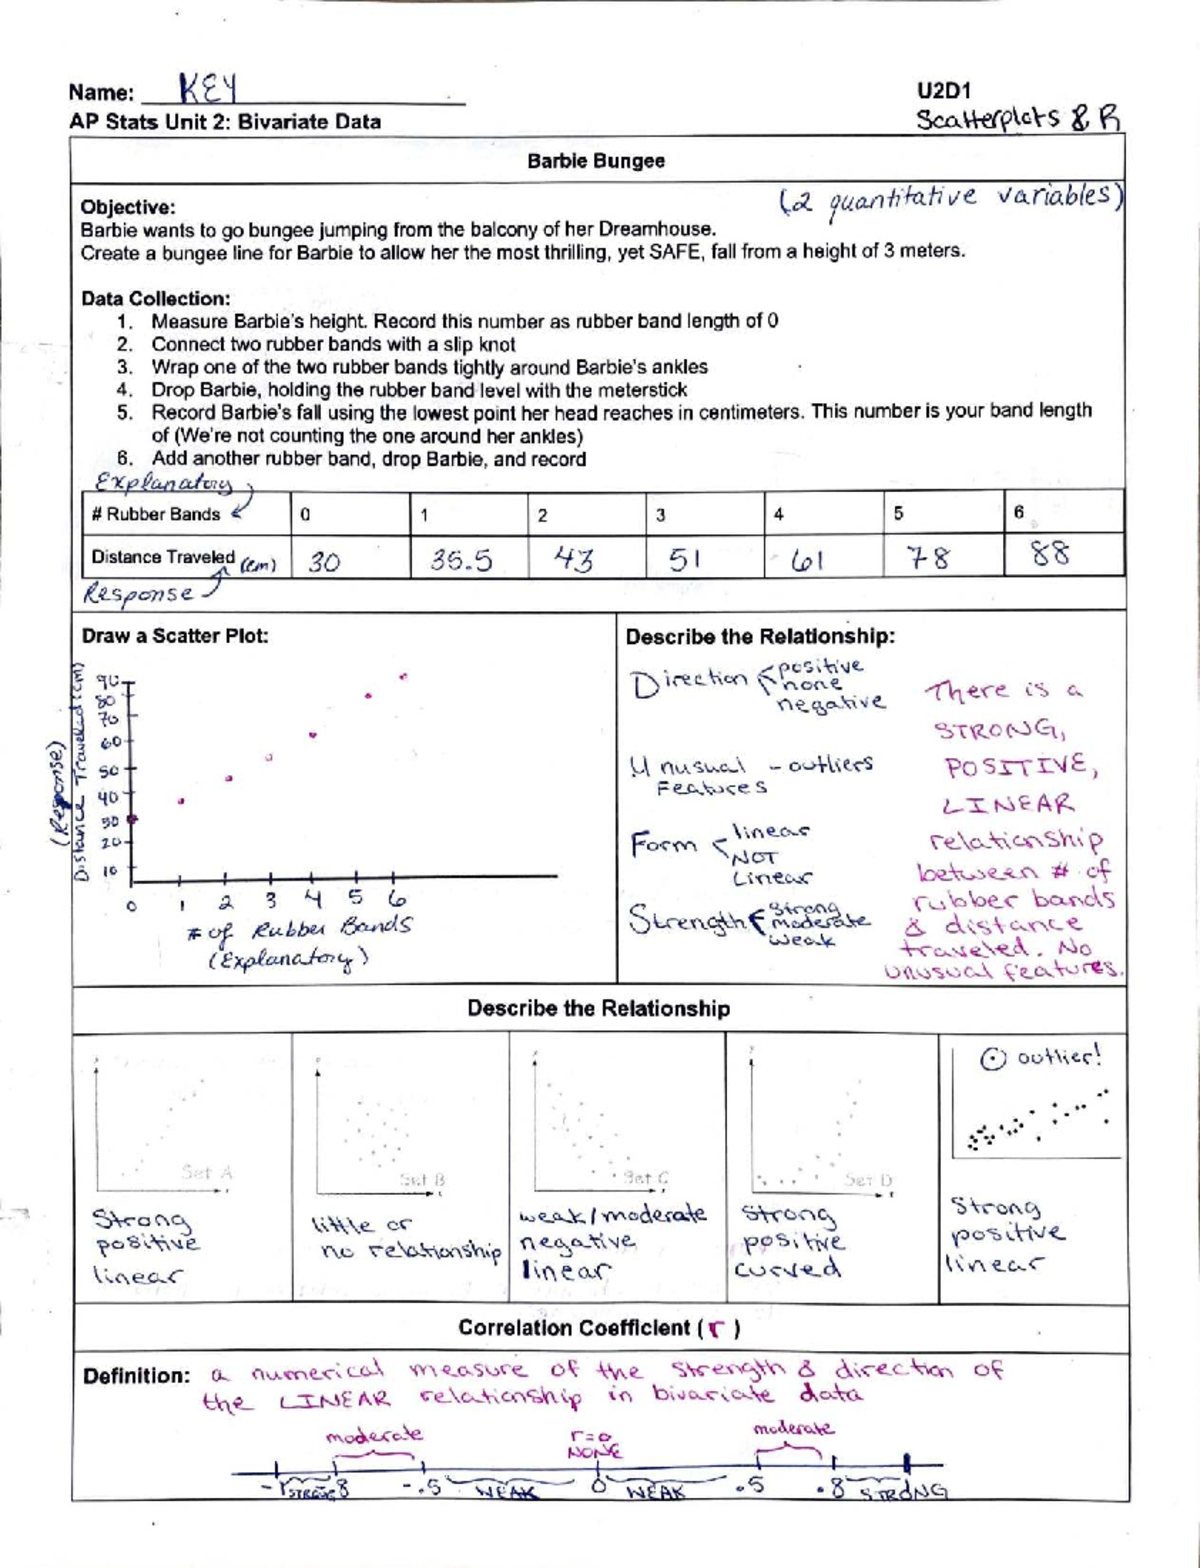 Name: KEY
U2D1
AP Stats Unit 2: Bivariate Data
Scatterplots & R
Barbie Bungee
(2 quantitative variables)
Objective:
Barbie wants to go bungee jumping from the balcony of her Dreamhouse.
Create a bungee line for Barbie to allow her the most thrilling, yet SAFE, fall from a height of 3 meters.
Data Collection:
1. Measure Barbie's height. Record this number as rubber band length of 0
2. Connect two rubber bands with a slip knot
3. Wrap one of the two rubber bands tightly around Barbie's ankles
4. Drop Barbie, holding the rubber band level with the meterstick
5. Record Barbie's fall using the lowest point her head reaches in centimeters. This number is your band length
of (We're not counting the one around her ankles)
6. Add another rubber band, drop Barbie, and record
Explanatory
# Rubber Bands 0 1 2 3 4 5 6
Distance Traveled (cm) 30 35.5 43 51 61 78 88
Response
Draw a Scatter Plot:
(Response)
Distance Traveled (cm)
90
80
70
60
50
40
30
20
10
0 1 2 3 4 5 6
# of Rubber Bands
(Explanatory)
Describe the Relationship:
Direction
positive
none
negative
Unusual - outliers
Features
Form
linear
NOT
Linear
Strength
Strong
moderate
weak
There is a
STRONG,
POSITIVE,
LINEAR
relationship
between # of
rubber bands
& distance
traveled. No
unusual features.
Describe the Relationship
Set A
Strong
positive
linear
Set B
little or
no relationship
Set C
weak/moderate
negative
linear
Set D
Strong
positive
curved
outlier!
Strong
positive
linear
Correlation Coefficient (r)
Definition: a numerical measure of the strength & direction of
the LINEAR relationship in bivariate data
moderate
r=0
NONE
moderate
-1 STRONG -.8 -.5 WEAK 0 WEAK .5 .8 STRONG